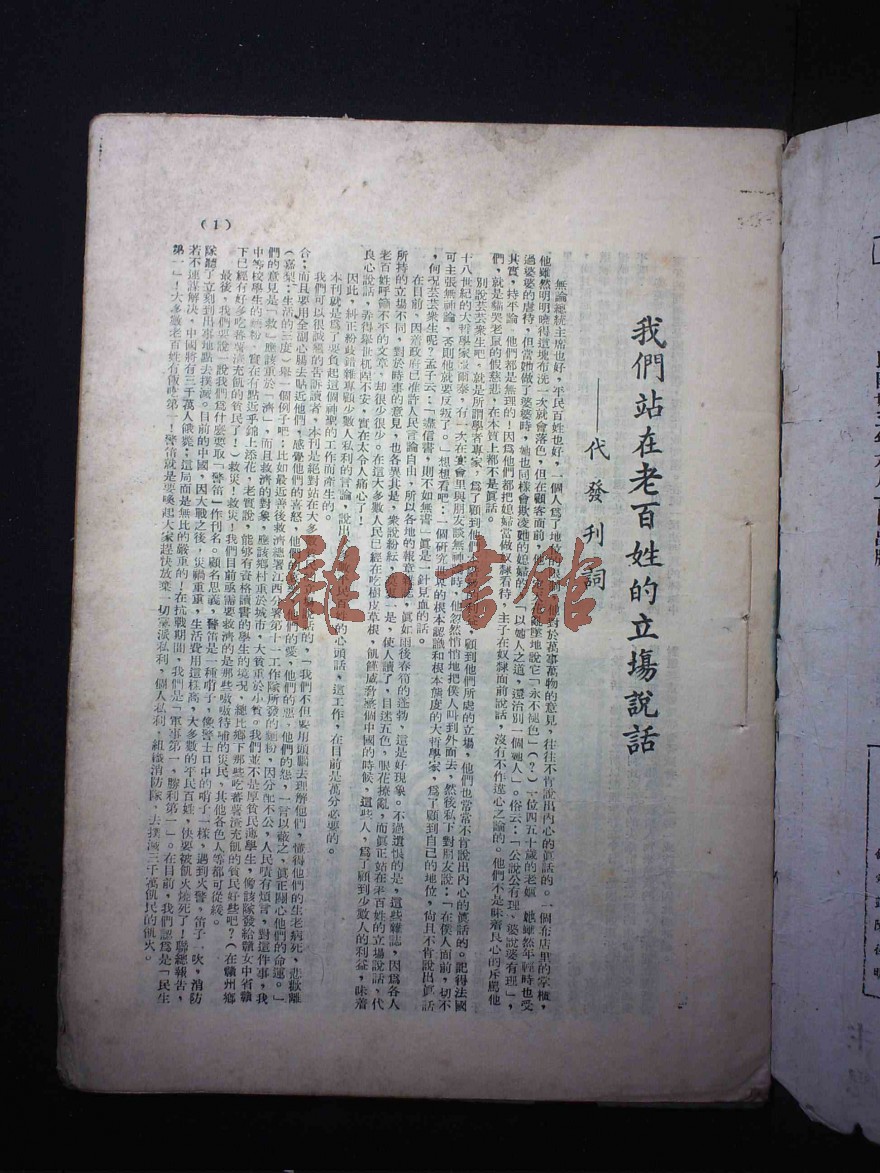 我們站在老百姓的立場說話
——代發刊詞
無論總統主席也好，平民百姓也好，一個人爲了地位的限制，他對於萬事萬物的意見，往往不肯說出內心的眞話的。一個布店里的掌櫃，
他雖然明明曉得這塊布洗一次就會落色，但在顧客面前，他一定天花亂墜地說它「永不褪色」（？）一位四五十歲的老嫗，她雖然年輕時也受
過婆婆的虐待，但當她做了婆婆時，她也同樣會欺凌她的媳婦的。「以她人之道，還治別一個她人」。俗云：「公說公有理，婆說婆有理」，
其實，持平論，他們都是無理的！因爲他們都把媳婦當做奴隸看待，主子在奴隸面前說話，沒有不作違心之論的。他們不是昧着良心的斥罵他
們，就是貓哭老鼠的假慈悲，在本質上都不是眞話。
別說芸芸衆生吧，就是所謂學者專家，爲了顧到他們 利益，顧到他們所處的立場，他們也常常不肯說出內心的眞話的。記得法國
十八世紀的大哲學家 爾泰，有一次在宴會里與朋友談無神 時，他忽然悄悄地把僕人叫到外面去，然後私下對朋友說：「在僕人面前，切不
可主張無神論，否則他就要反叛了。」想想看吧：一個研究 界的根本認識和根本態度的大哲學家，爲了顧到自己的地位，尙且不肯說出眞話
，何况芸芸衆生呢？孟子云：「盡信書，則不如無書」眞是一針見血的話。
在目前，因着政府已准許人民言論自由，所以各地的報章雜誌，眞如雨後春筍的蓬勃，這是好現象。不過遺憾的是，這些雜誌，因爲各人
所持的立場不同，對於時事的意見，也各異其是，衆說紛紜， 一是，使人讀了，目迷五色，眼花撩亂，而眞正站在老百姓的立場說話，代
老百姓呼籲不平的文章，却很少很少。在這大多數人民已經在吃樹皮草根，飢餓威脅整個中國的時候，這些人，爲了顧到少數人的利益，昧着
良心說話，弄得舉世杌隉不安，實在太令人痛心了！
因此，糾正粉歧錯雜專顧少數人私利的言論，說出 民百姓的心頭話，這工作，在目前是萬分必要的。
本刊就是爲了要負起這個神聖的工作而產生的。
我們可以很誠懇的告訴讀者，本刊是絕對站在大多數 說話的，「我們不但要用頭腦去理解他們，懂得他們的生老病死，悲歡離
合；而且要用全副心腸去貼近他們，感覺他們的喜怒，他們的 ，他們的愛，他們的惡，他們的怨，一言以蔽之，眞正關心他們的命運。」
（嘉梨：生活的三度）舉一個例子吧：比如最近善後救濟總署江西分署第十一工作隊所發的麵粉，因分配不公，人民嘖有煩言，對這件事，我
們的意見是「救」應該重於「濟」，而且救濟的對象，應該鄉村重於城市，大貧重於小貧。我們並不是厚貧民薄學生，像該隊發給贛女中省贛
中等校學生的麵粉，實在有點近乎錦上添花，老實說，能够有資格讀書的學生的境况，總比鄉下那些吃蕃薯渣充飢的貧民好些吧？（在贛州鄉
下已經有好多吃蕃薯渣充飢的貧民了！）救災！救災！我們目前亟需要救濟的是那些嗷嗷待哺的災民，其他各色人等都可從緩。
最後，我們要說一說我們爲什麼要取「警笛」作刊名。顧名思義，警笛是一種哨子，像警士口中的哨子一樣，遇到火警，笛子一吹，消防
隊聽了立刻到出事地點去撲滅。目前的中國，因大戰之後，災禍重重，生活費用這樣高，大多數的平民百姓，快要被飢火燒死了！聯總報告，
若不速謀解决，中國將有三千萬人餓斃；這局面是無比的嚴重的！在抗戰期間，我們是「軍事第一，勝利第一」。在目前，我們認爲是「民生
第一」！大多數老百姓有飯吃第一！警笛就是要喚起大家趕快放棄一切黨派私利，個人私利，組織消防隊，去撲滅三千萬飢民的飢火。
（1）
雜·書館